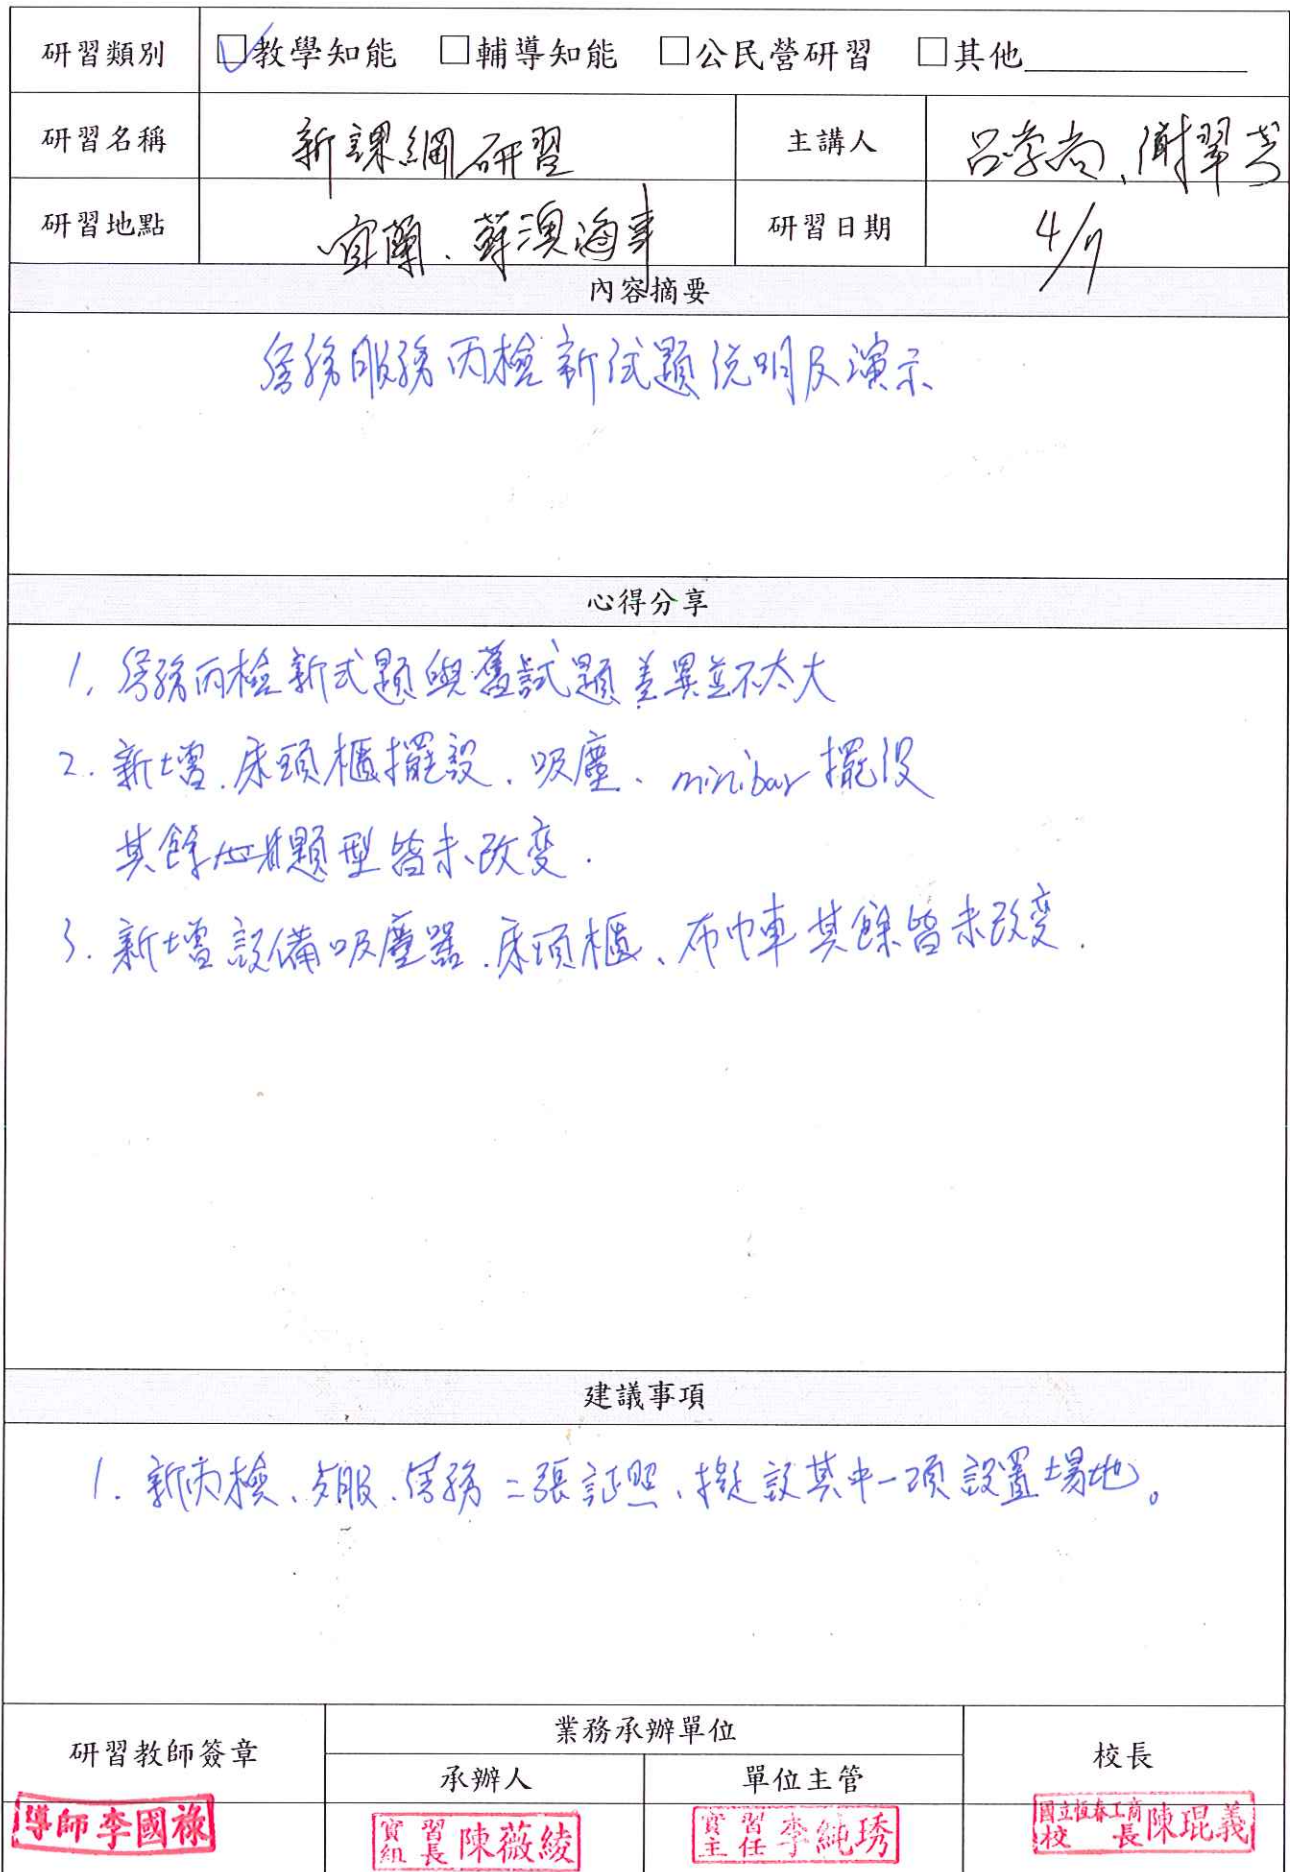 研習類別 ☑教學知能 □輔導知能 □公民營研習 □其他
研習名稱 新課綱研習 主講人 呂学尚、謝翠芳
研習地點 宜蘭、蘇澳海事 研習日期 4/17
內容摘要
房務服務丙檢新試題说明及演示
心得分享
1. 房務丙檢新式題與舊試題差異並不太大
2. 新增、床頭櫃擺設、吸塵、minibar 擺设
其餘題型皆未改变.
3. 新增設備吸塵器、床頭櫃、布巾車其餘皆未改变.
建議事項
1. 新丙檢、房務二張証照、擬設其中一項設置場地。
研習教師簽章 業務承辦單位 校長
承辦人 單位主管
導師李國祿 實習組長陳薇綾 實習主任李純琇 國立恆春工商校長陳琨義